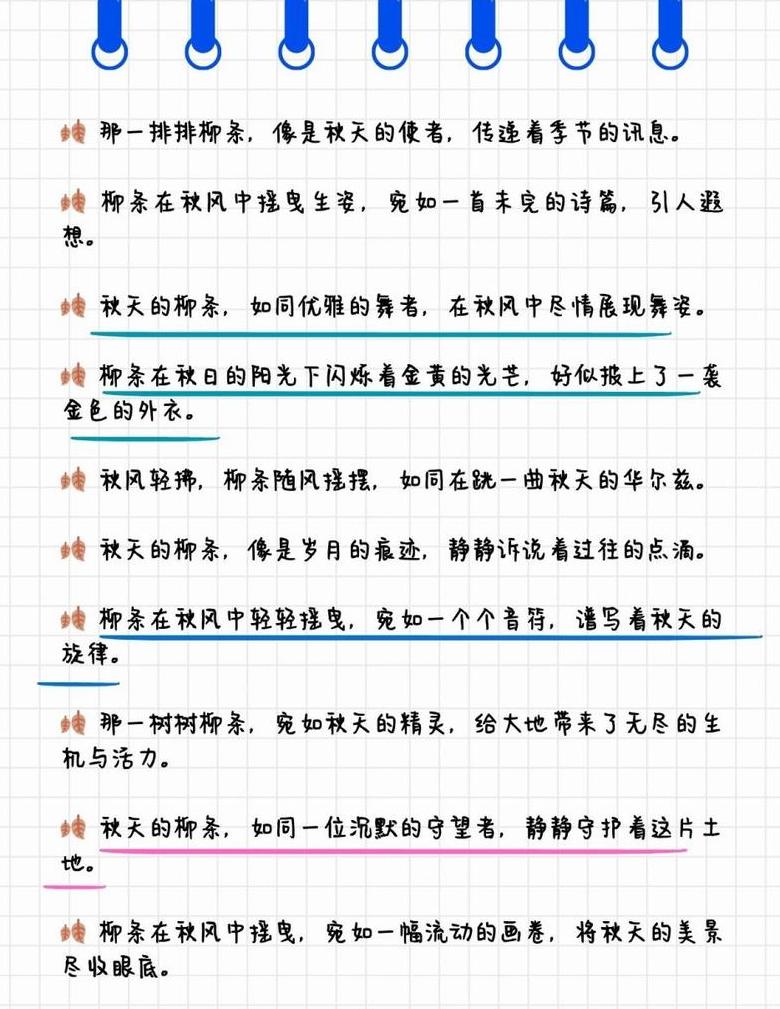 那一排排柳条，像是秋天的使者，传递着季节的讯息。
柳条在秋风中摇曳生姿，宛如一首未完的诗篇，引人遐
想。
秋天的柳条，如同优雅的舞者，在秋风中尽情展现舞姿。
柳条在秋日的阳光下闪烁着金黄的光芒，好似披上了一袭
金色的外衣。
秋风轻拂，柳条随风摇摆，如同在跳一曲秋天的华尔兹。
秋天的柳条，像是岁月的痕迹，静静诉说着过往的点滴。
柳条在秋风中轻轻摇曳，宛如一个个音符，谱写着秋天的
旋律。
那一树树柳条，宛如秋天的精灵，给大地带来了无尽的生
机与活力。
秋天的柳条，如同一位沉默的守望者，静静守护着这片土
地。
柳条在秋风中摇曳，宛如一幅流动的画卷，将秋天的美景
尽收眼底。